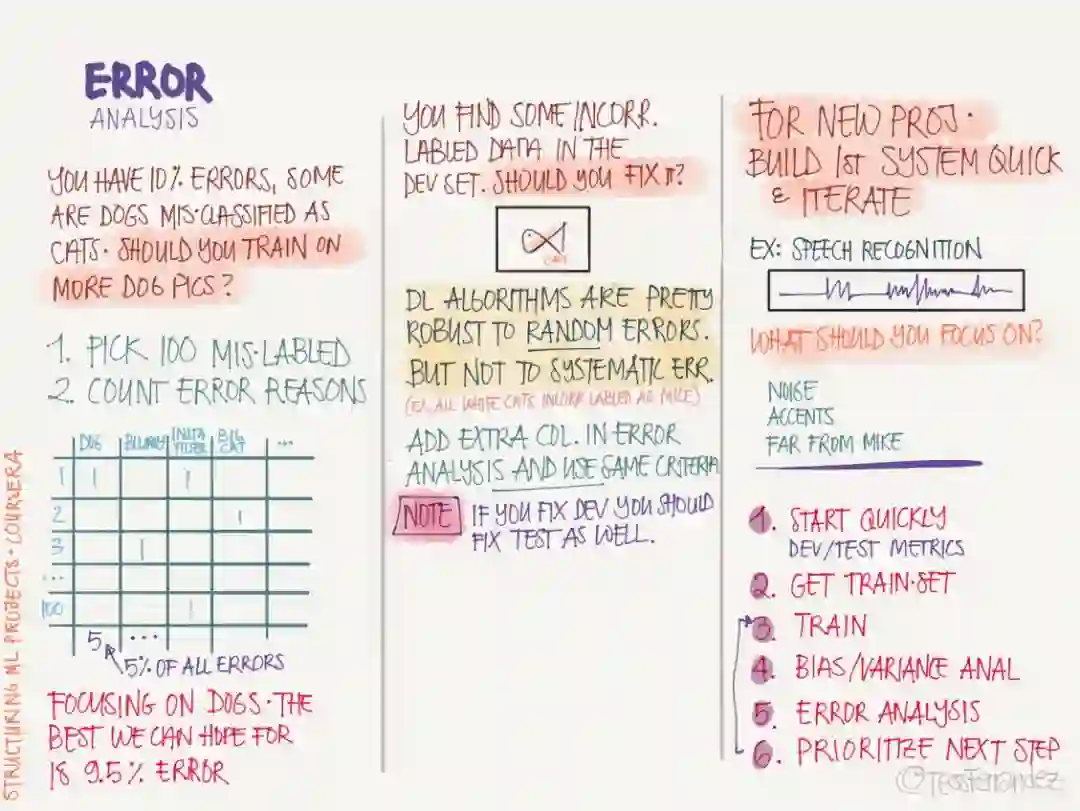 ERROR
ANALYSIS
YOU HAVE 10% ERRORS, SOME
ARE DOGS MIS·CLASSIFIED AS
CATS· SHOULD YOU TRAIN ON
MORE DOG PICS?
1. PICK 100 MIS·LABLED
2. COUNT ERROR REASONS
DOG BLURRY INSTA FILTER BIG CAT ...
1 1 1
2 1
3 1
...
100 1
5 ...
5% OF ALL ERRORS
FOCUSING ON DOGS· THE
BEST WE CAN HOPE FOR
IS 9.5% ERROR
STRUCTURING ML PROJECTS · COURSERA
YOU FIND SOME INCORR.
LABLED DATA IN THE
DEV SET. SHOULD YOU FIX IT?
CAT
DL ALGORITHMS ARE PRETTY
ROBUST TO RANDOM ERRORS.
BUT NOT TO SYSTEMATIC ERR.
(EX. ALL WHITE CATS INCORR LABLED AS MICE)
ADD EXTRA COL. IN ERROR
ANALYSIS AND USE SAME CRITERIA
NOTE IF YOU FIX DEV YOU SHOULD
FIX TEST AS WELL.
FOR NEW PROJ·
BUILD 1st SYSTEM QUICK
& ITERATE
EX: SPEECH RECOGNITION
WHAT SHOULD YOU FOCUS ON?
NOISE
ACCENTS
FAR FROM MIKE
1. START QUICKLY
DEV/TEST METRICS
2. GET TRAIN·SET
3. TRAIN
4. BIAS/VARIANCE ANAL
5. ERROR ANALYSIS
6. PRIORITIZE NEXT STEP
©TessFerrandez